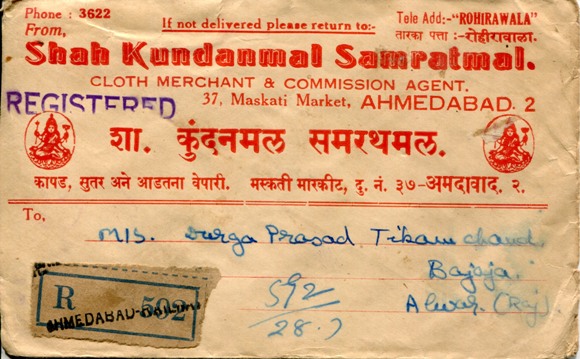 Phone : 3622
If not delivered please return to:-
Tele Add:-"ROHIRAWALA"
From,
तारका पत्ता :-रोहीरावाला.
Shah Kundanmal Samratmal.
CLOTH MERCHANT & COMMISSION AGENT.
REGISTERED
37, Maskati Market, AHMEDABAD. 2
शा. कुंदनमल समरथमल.
कापड, सुतर अने आडतना वेपारी. मस्कती मारकीट, दु. नं. ३७-अमदावाद, २.
To,
M/S. Durga Prasad Tikam chand
Bajaja.
Alwar. (Raj)
R 592
AHMEDABAD-RAILWAY
592
28.7